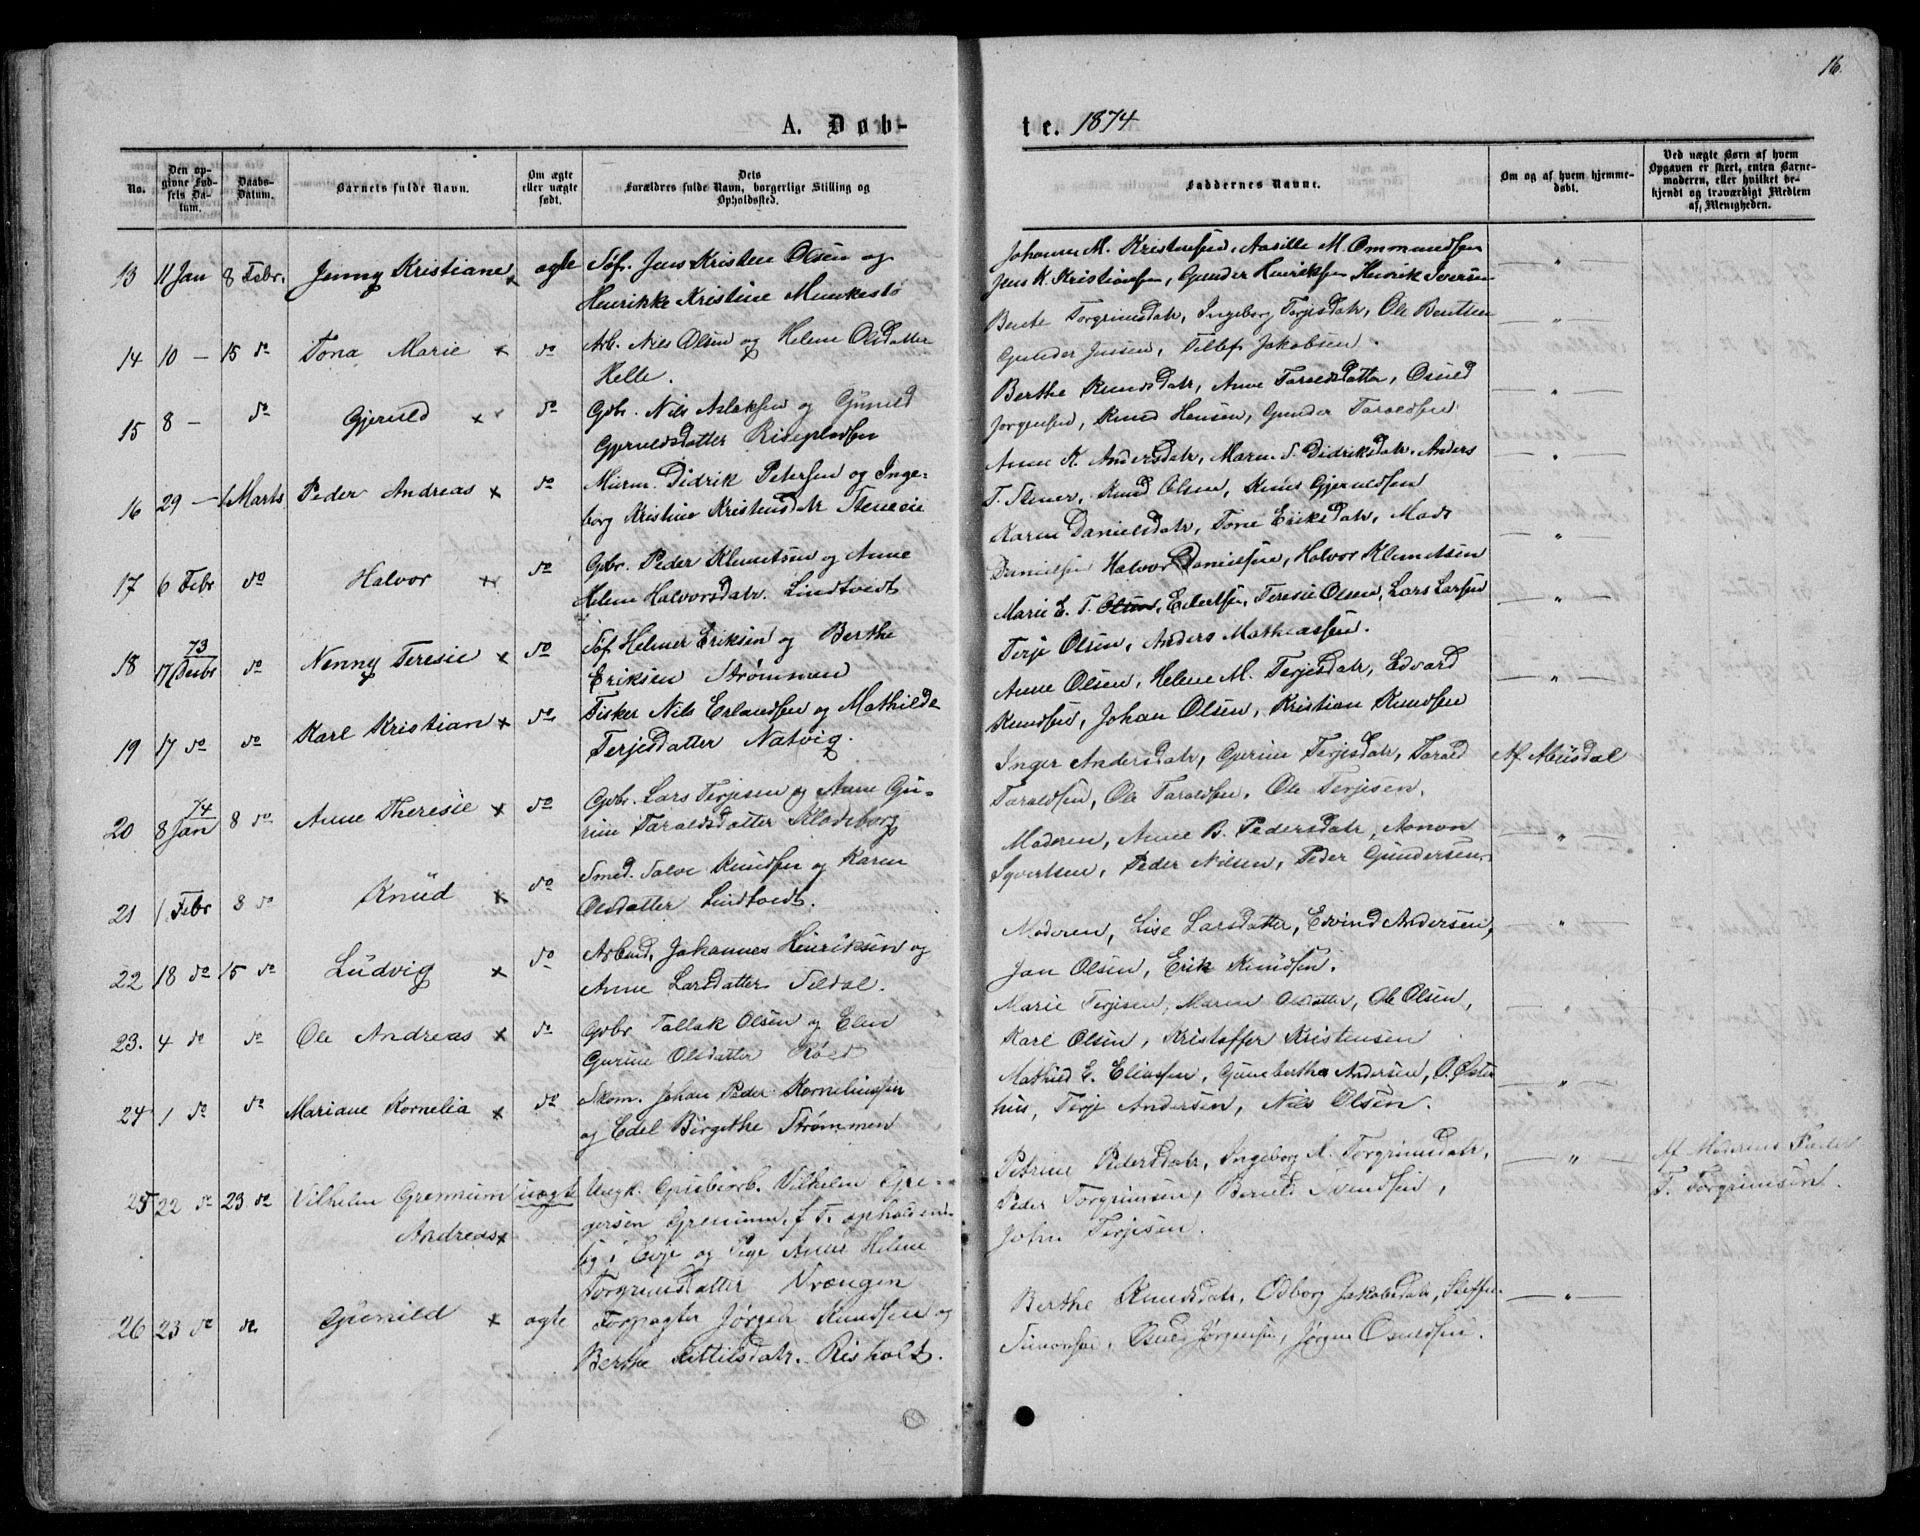 16.
A. Døb-
te. 1874
No.
Den op-
givne Fød-
sels Da-
tum.
Daabs-
Datum.
Barnets fulde Navn.
Om ægte
eller uægte
født.
Dets
Forældres fulde Navn, borgerlige Stilling og
Opholdssted.
Faddernes Navne.
Om og af hvem hjemme-
døbt.
Ved uægte Børn af hvem
Opgaven er skeet, enten Barne-
moderen, eller hvilket be-
kjendt og troværdigt Medlem
af Menigheden.
13 11 Jan 8 Febr. Jenny Kristiane x ægte Søf. Jens Kristian Olsen og
Henrikke Kristine Munkestø
Johanne M. Kristensen, Aasille M. Ommundsen
Jens K. Kristiansen, Gunder Henriksen Henrik Iversen
14 10 — 15 do Tona Marie x do Arb. Nils Olsen og Helene Olsdatter
Helle.
Bente Torgrimsdatr, Ingeborg Terjesdatr, Ole Bentsen
Gunder Jensen, Tellef Jakobsen.
15 8 — do Gjeruld x do Gbr. Nils Aslaksen og Gunild
Gjeruldsdatter Risepladsen
Berthe Knudsdatr, Anne Taraldsdatter, Osuld
Jørgensen, Knud Hansen, Gunder Taraldsen
16 29 — 1 Marts Peder Andreas x do Murm. Didrik Petersen og Inge-
borg Kristine Kristensdatr
Anne K. Andersdatr, Maren S. Didriksdatr, Anders
T. Stener, Knud Olsen, Knud Gjeruldsen
17 6 Febr do Halvor x do Gbr. Peder Klemetsen og Anne
Helene Halvorsdatr. Lindtveit
Karen Danielsdatr, Tone Eriksdatr, Mads
Danielsen Halvor Danielsen, Halvor Klemetsen
18 73
17 Decbr do Nenny Teresie x do Søf. Helmer Eriksen og Berthe
Eriksen Strømmen
Marie E. T. Olsen, Teresie Olsen, Lars Larsen
Terje Olsen, Anders Mathiassen.
19 17 do do Karl Kristian x do Fisker Nils Erlandsen og Mathilde
Terjesdatter Natvig.
Anne Olsen, Helene M. Terjesdatr, Edvard
Knudsen, Johan Olsen, Kristian Knudsen
20 74
8 Jan 8 do Anne Theresie x do Gbr. Lars Terjesen og Anne Gu-
rine Taraldsdatter Klodeborg
Inger Andersdatr, Gurine Terjesdatr, Tarald
Taraldsen, Ole Taraldsen, Ole Terjesen.
Af
21 1 Febr 8 do Knud x do Smed. Salve Knudsen og Karen
Olsdatter Lindtveit.
Moderen, Anne B. Pedersdatr, Aanon
Syvertsen, Peder Nilsen, Peder Gundersen.
22 18 do 15 do Ludvig x do Arbmd. Johannes Henriksen og
Anne Larsdatter Seldal.
Moderen, Lise Larsdatter, Edvind Andersen,
Jan Olsen, Erik Knudsen.
23. 4 do do Ole Andreas x do Gbr. Tallak Olsen og Elen
Gurine Olsdatter
Marie Terjesen, Maren Olsdatter, Ole Olsen,
Karl Olsen, Kristoffer Kristensen
24 1 do do Mariane Kornelia x do Skom. Johan Peder Korneliussen
og Edel Birgithe Strømmen
Mathild E. Eliassen, Gunebertha Andersen, O. Øster
hus, Terje Andersen, Nils Olsen.
25 22 do 23 do Vilhelm Grennium
Andreas x uægt Ungk. Vilhelm Gre-
gersen Grennium, f. T. opholden-
de i Evje og Pige Anne Helene
Torgrimsdatter Vrængen
Petrine Pedersdatr, Ingeborg A. Torgrimsdatr,
Peder Torgrimsen, Bernt Svendsen,
John Terjesen.
Af Moderens Fader
T. Torgrimsen.
26 23 do do Gunild x ægte Forpagter Jørgen Knudsen og
Berthe Kittilsdatr. Risholt.
Berthe Knudsdatr, Odborg Jakobsdatr, Steffen
Simonsen, Osuld Jørgensen, Jørgen Osuldsen.